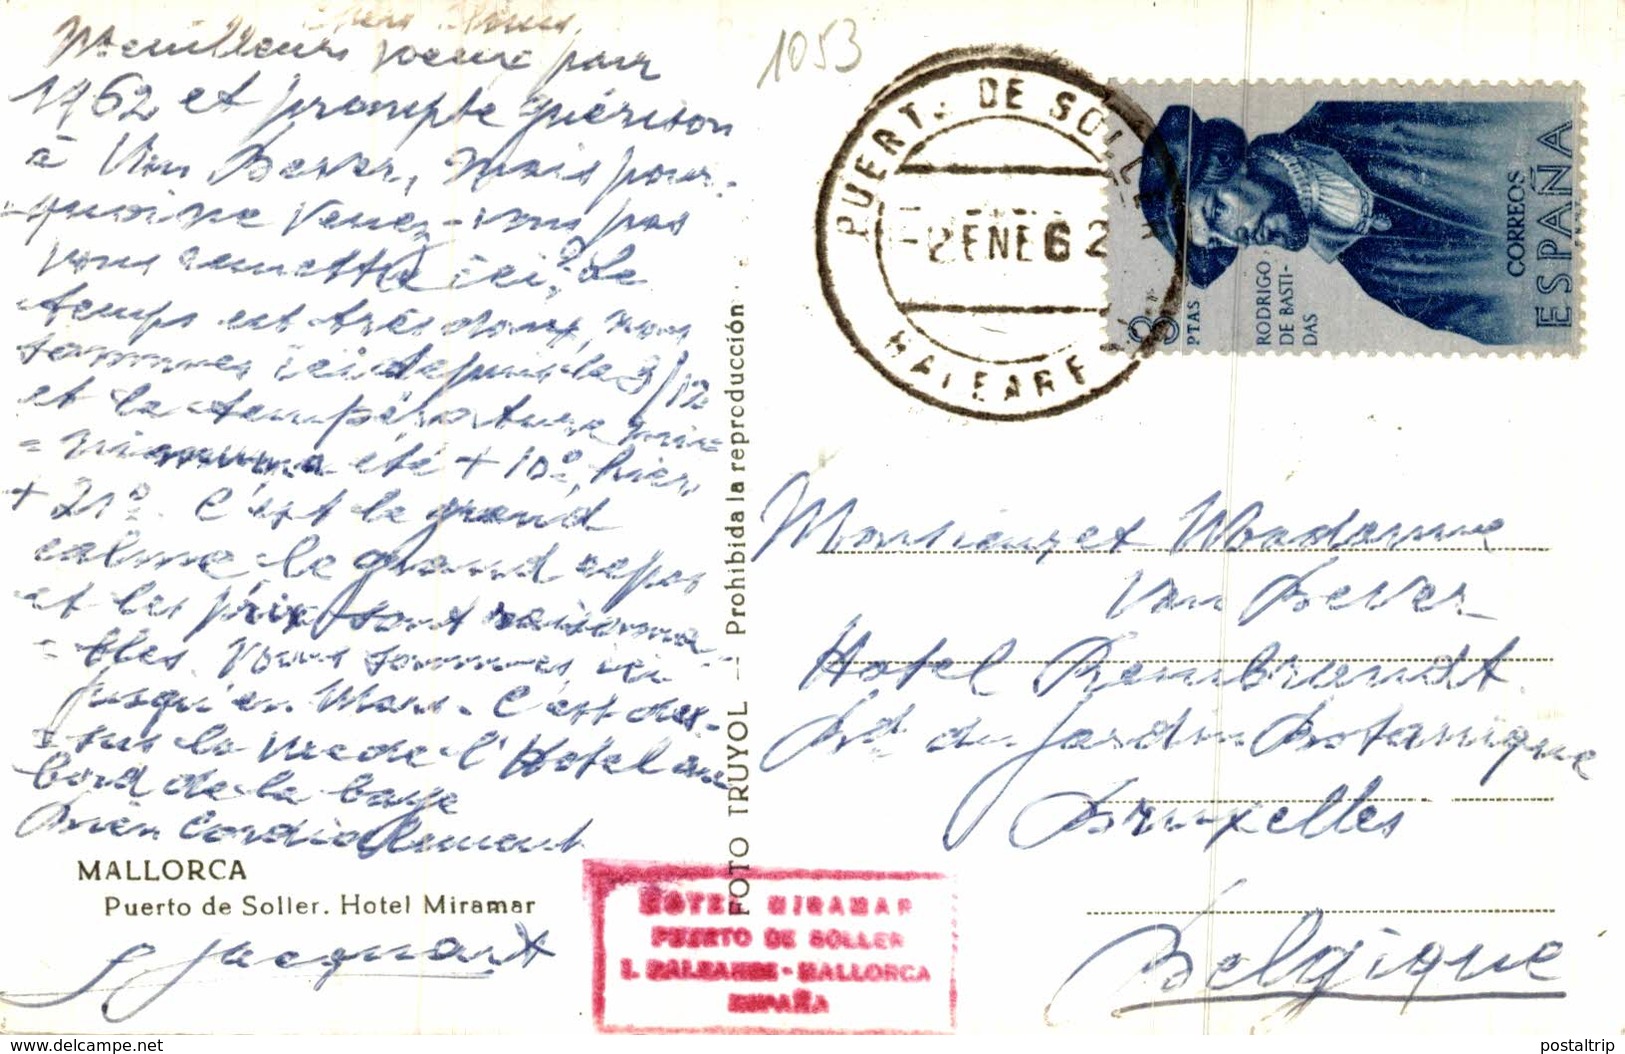 Chers Amis,
Meilleurs voeux pour
1962 et prompte guérison
à Van Bever, mais pour-
quoi ne venez-vous pas
vous remettre ici? Le
temps est très doux, nous
sommes ici depuis le 3/12
et la température mi-
=nimuma été +10°, hier
+ 21°. C'est le grand
calme le grand repos
et les prix sont raisonna-
=bles. Nous sommes ici
jusqu'en Mars. C'est des-
=sus la vue de l'Hotel au
bord de la baye
Bien Cordialement
MALLORCA
Puerto de Soller. Hotel Miramar
Jacquart
FOTO TRUYOL — Prohibida la reproducción
1053
PUERT. DE SOLLER
-2 ENE 62
BALEARES
3 PTAS
RODRIGO
DE BASTI-
DAS
CORREOS
ESPAÑA
Monsieur et Madame
Van Bever
Hotel Rembrandt
Bd. du Jardin Botanique
Bruxelles
Belgique
HOTEL MIRAMAR
PUERTO DE SOLLER
I. BALEARES - MALLORCA
ESPAÑA
postaltrip-delcampe.net
postaltrip